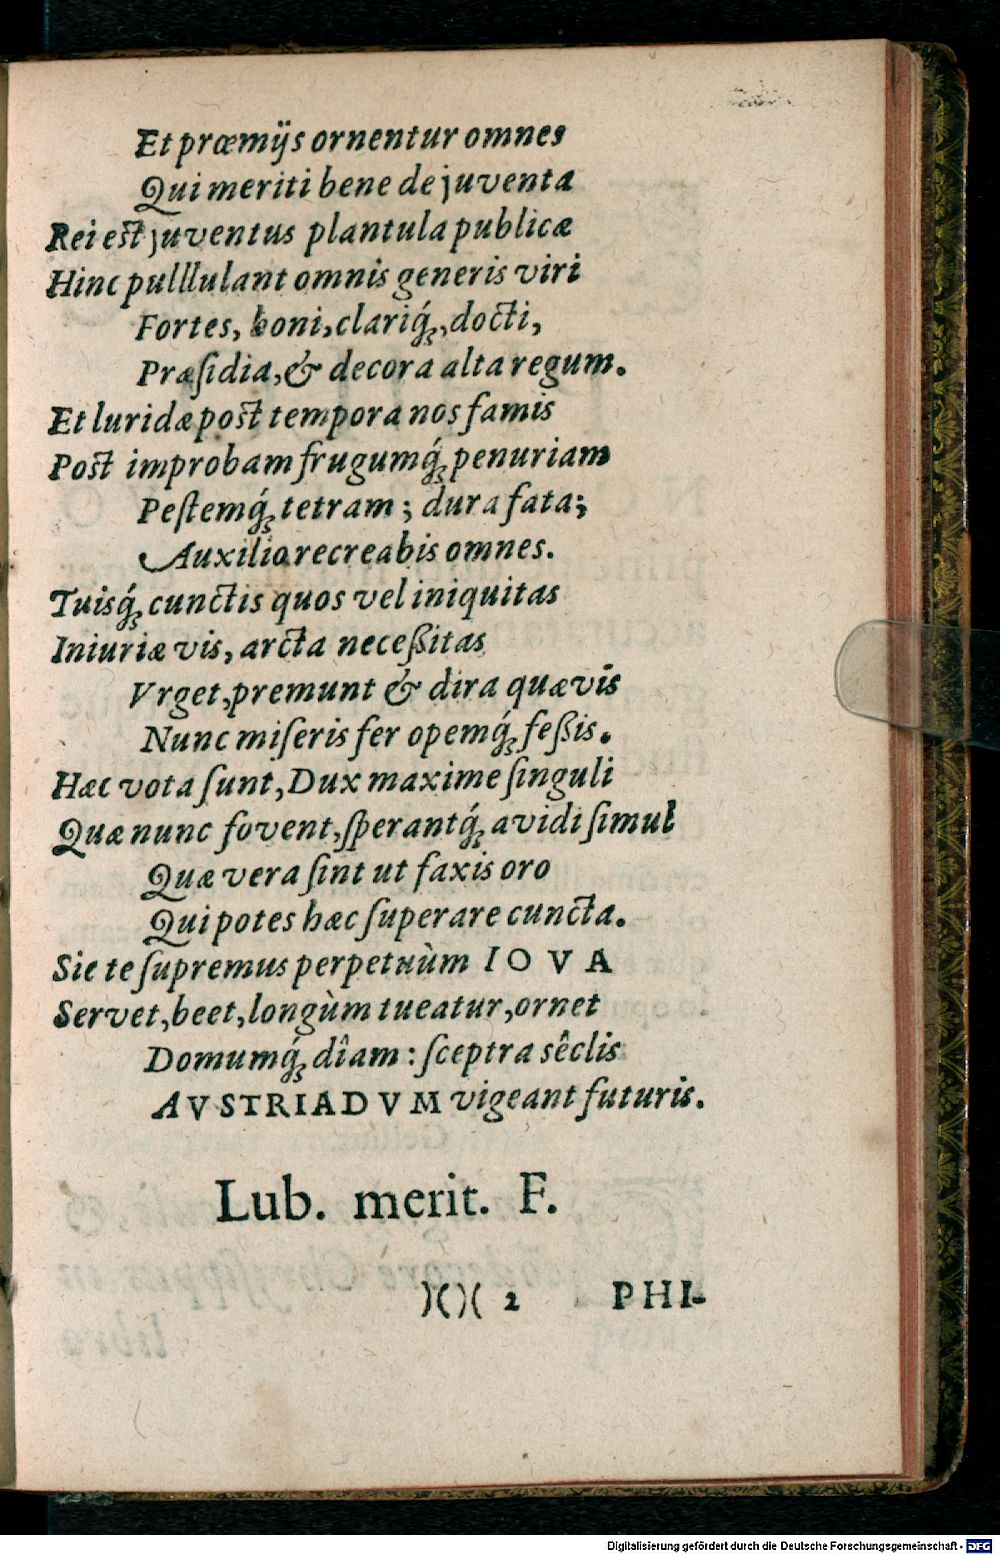 Et præmijs ornentur omnes
Qui meriti bene de juventa
Rei est juventus plantula publicæ
Hinc pulllulant omnis generis viri
Fortes, boni, clariq́ꝫ, docti,
Præſidia, & decora alta regum.
Et luridæ post tempora nos famis
Post improbam frugumq́ꝫ penuriam
Peſtemq́ꝫ tetram; dura fata;
Auxilio recreabis omnes.
Tuisq́ꝫ cunctis quos vel iniquitas
Iniuriæ vis, arcta neceßitas
Vrget, premunt & dira quævis
Nunc miſeris fer opemq́ꝫ feßis.
Hæc vota ſunt, Dux maxime ſinguli
Quæ nunc fovent, ſperantq́ꝫ avidi ſimul
Quæ vera ſint ut faxis oro
Qui potes hæc ſuperare cuncta.
Sic te ſupremus perpetuùm IOVA
Servet, beet, longùm tueatur, ornet
Domumq́ꝫ dîam: ſceptra sêclis
AVSTRIADVM vigeant futuris.
Lub. merit. F.
)()( 2 PHI-
Digitalisierung gefördert durch die Deutsche Forschungsgemeinschaft - DFG